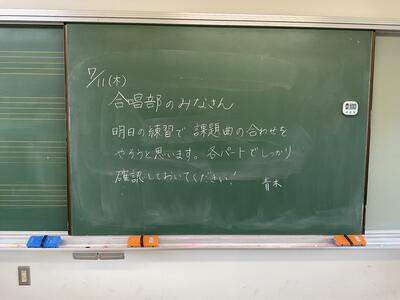 7/11(木)
合唱部のみなさん
明日の練習で 課題曲の合わせを
やろうと思います。各パートでしっかり
確認しておいてください!
青木